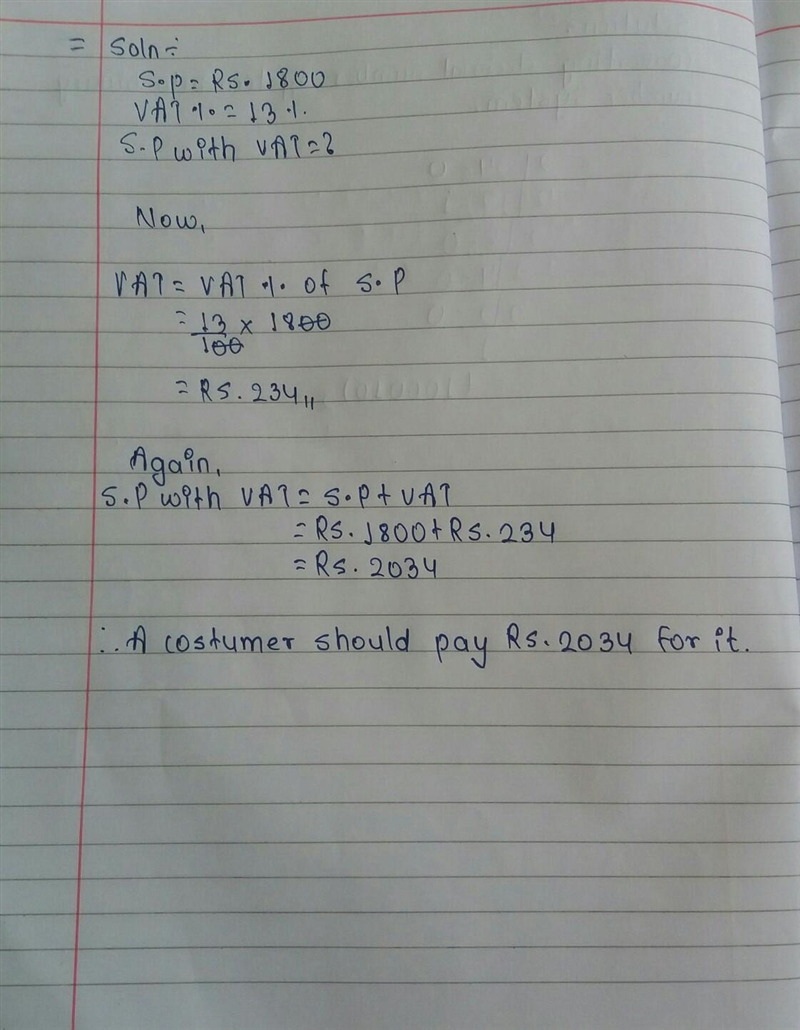 = Soln ÷
S.p = Rs. 1800
VAT % = 13 %.
S.P with VAT = ?
Now,
VAT = VAT % of S.P
= 13/100 × 1800
= Rs. 234,,
Again,
S.P with VAT = S.P + VAT
= Rs. 1800 + Rs. 234
= Rs. 2034
∴ A costumer should pay Rs. 2034 for it.